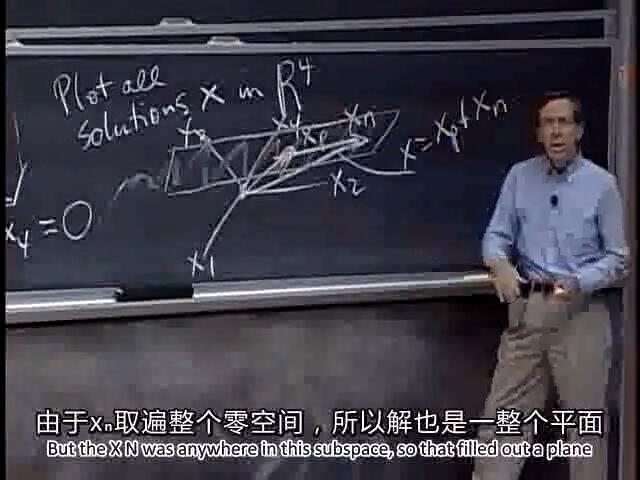 Plot all
solutions x in R⁴
x₃ x₄ xp xn
x = xp + xn
x₂
x₄ = 0
x₁
由于xₙ取遍整个零空间，所以解也是一整个平面
But the X N was anywhere in this subspace, so that filled out a plane